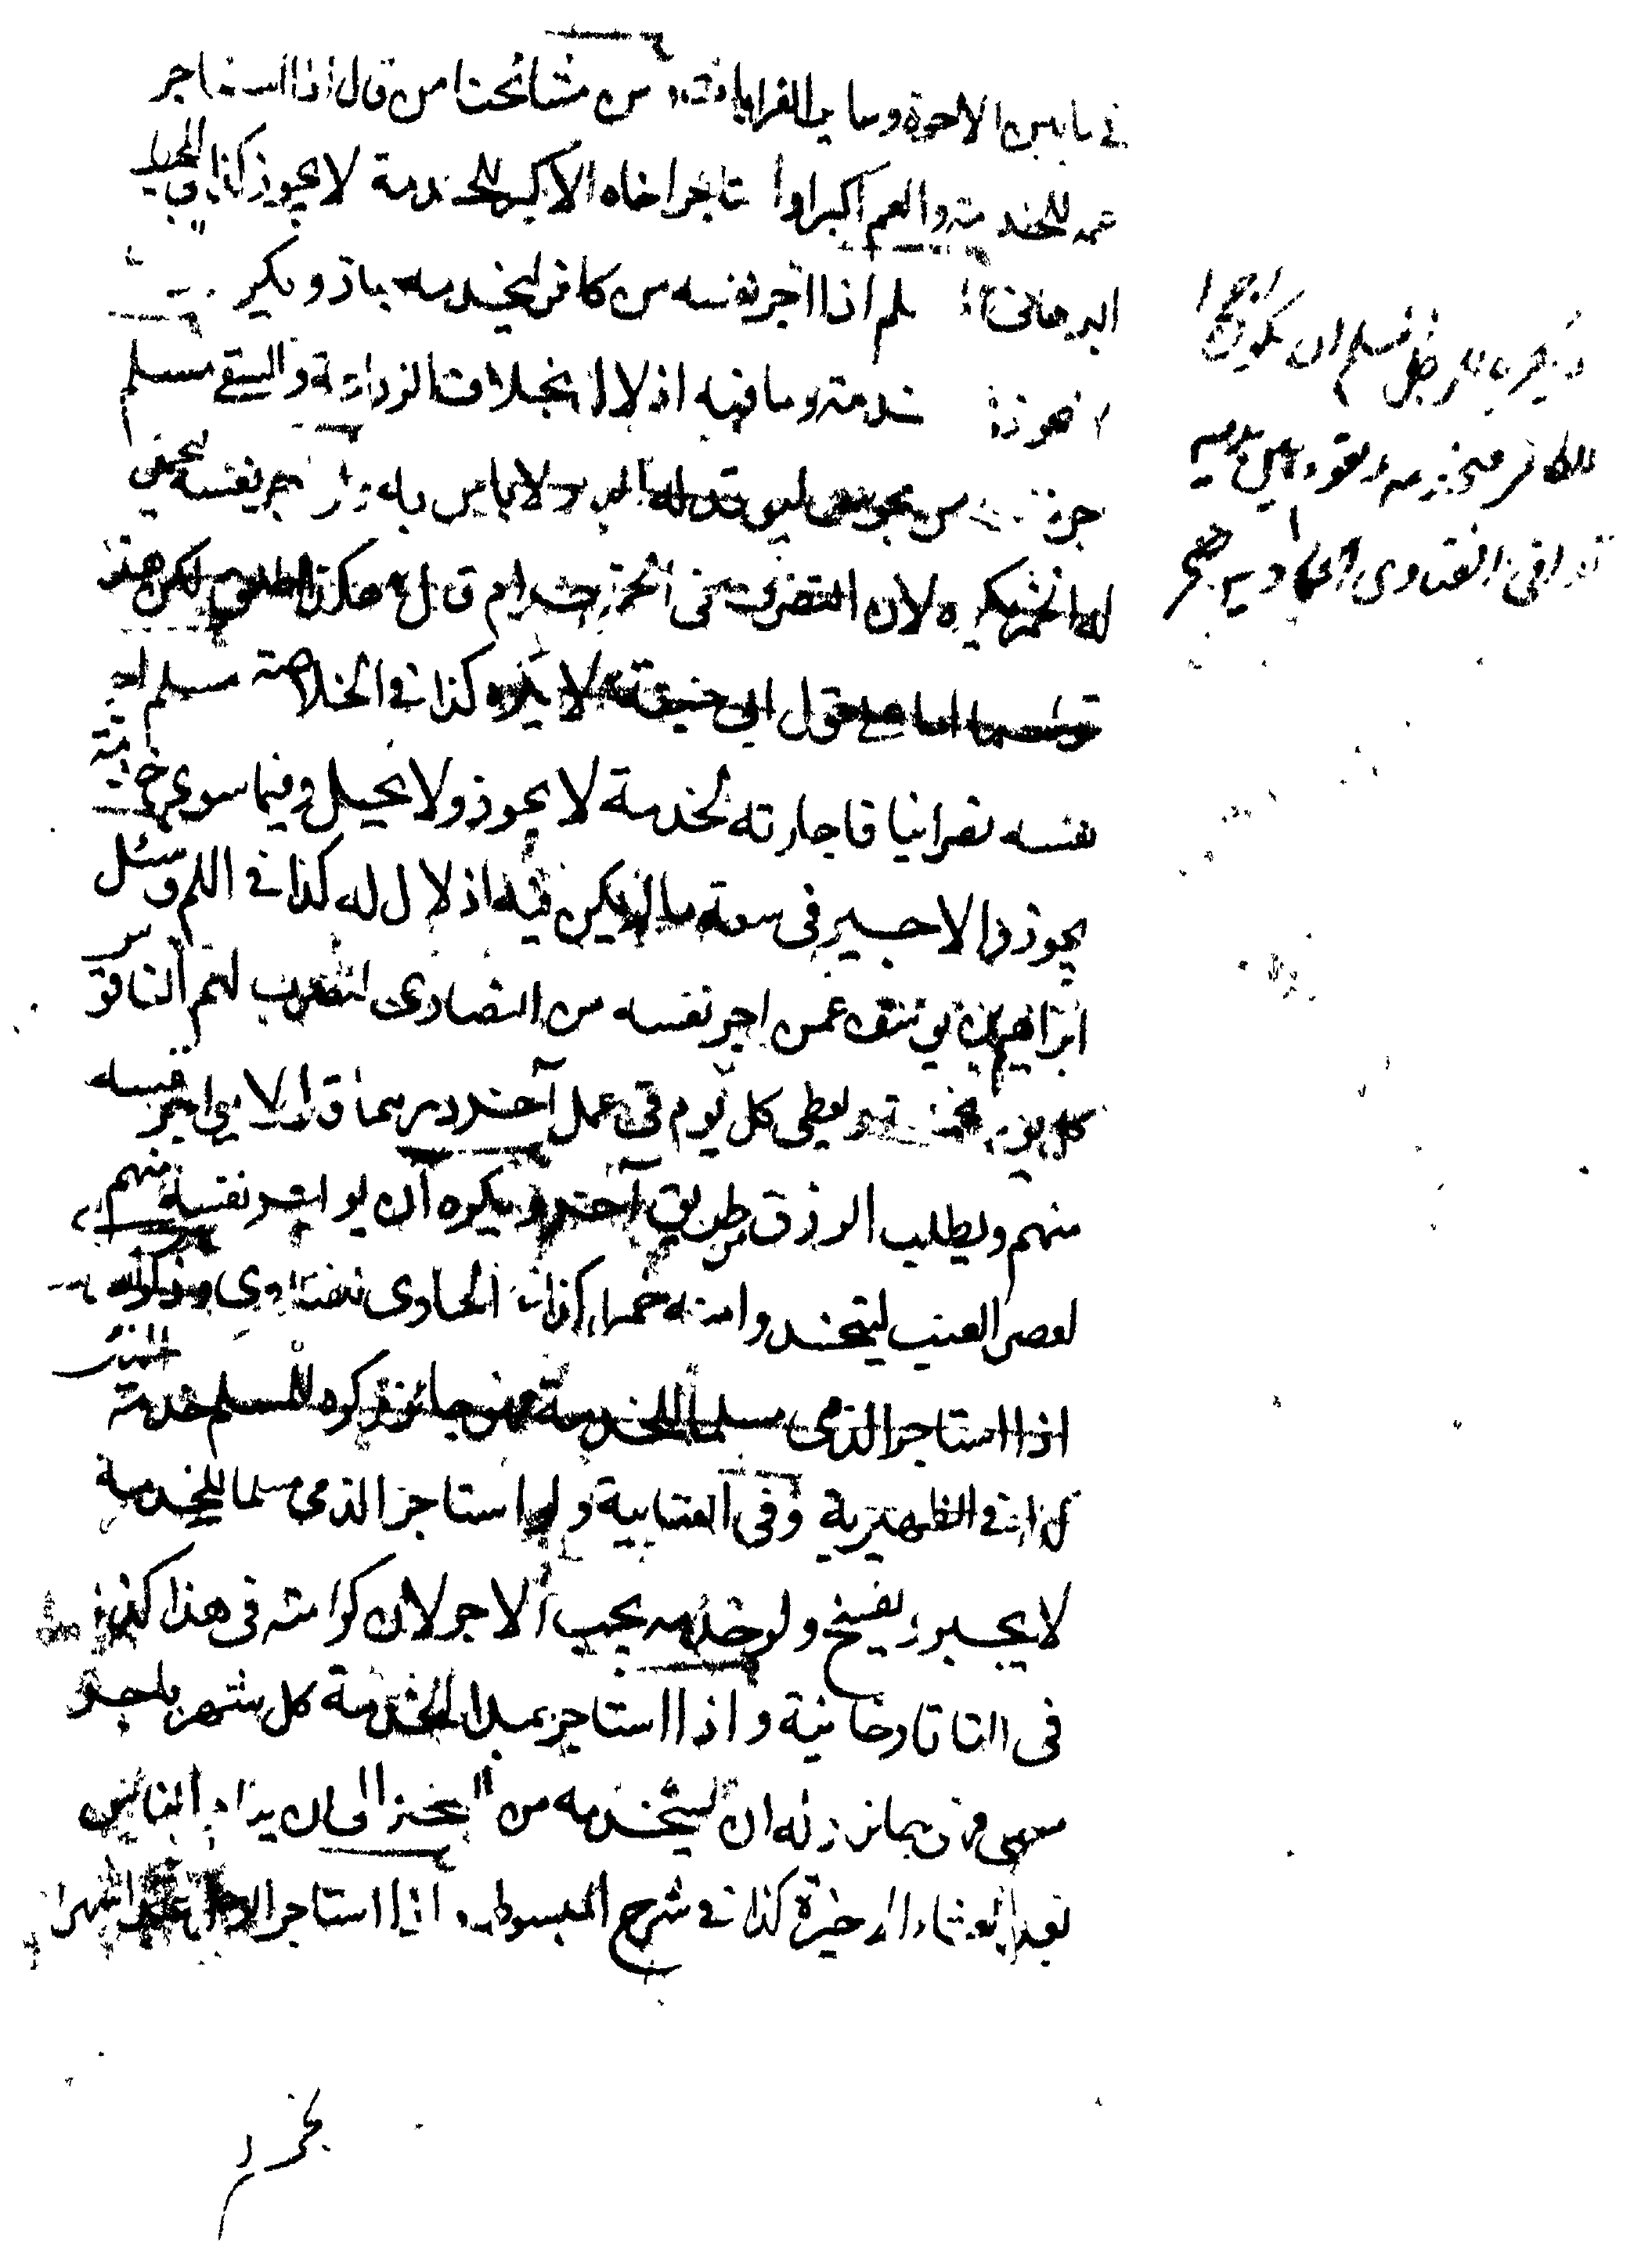 في ما بين الاخوة وسائر القرابات ومن مشائخنا من قال اذا استاجر
عمه للخدمة والعم اكبر او استاجر اخاه الاكبر للخدمة لا يجوز كذا في المحيط
البرهاني مسلم اذا اجر نفسه من كافر ليخدمه جاز ويكره
خدمة وما فيه اذلال بخلاف الزراعة والسقي مسلم
اجر نفسه من مجوسي ليوقد له النار لا باس به اجر نفسه
له الخمر يكره لان التصرف في الخمر حرام قال هكذا اطلق لكن هذا
قولهما اما على قول ابي حنيفة لا يكره كذا في الخلاصة مسلم اجر
نفسه نصرانيا فاجارته لخدمة لا يجوز ولا يحل وفيما سوى خدمته
يجوز والاجير في سعة ما لم يكن فيه اذلال له كذا في وسئل
ابراهيم بن يوسف عمن اجر نفسه من النصارى لضرب لهم الناقوس
كل يوم بخمسة ويعطى كل يوم في عمل آخر درهما قال لا يؤاجر نفسه
منهم ويطلب الرزق من طريق آخر ويكره ان يؤاجر نفسه منهم
لعصر العنب ليتخذوا منه خمرا كذا في الحاوي للفتاوى
اذا استاجر الذمي مسلما للخدمة فهو جائز وكره للمسلم خدمته
كذا في الظهيرية وفي العتابية ولو استاجر الذمي مسلما للخدمة
لا يجبر ويفسخ ولو خدمه يجب الاجر لان كرامته في هذا كذا
في التاتارخانية واذا استاجر عبدا للخدمة كل شهر باجر
مسمى فهو جائز وله ان يستخدمه من الى ان ينام الناس
بعد العشاء الاخيرة كذا في شرح المبسوط واذا استاجر الرجل
ويكره للرجل المسلم ان يكون اجيرا
للكافر فيخدمه ويقوم بين يديه
كذا في الفتاوى الحمادية